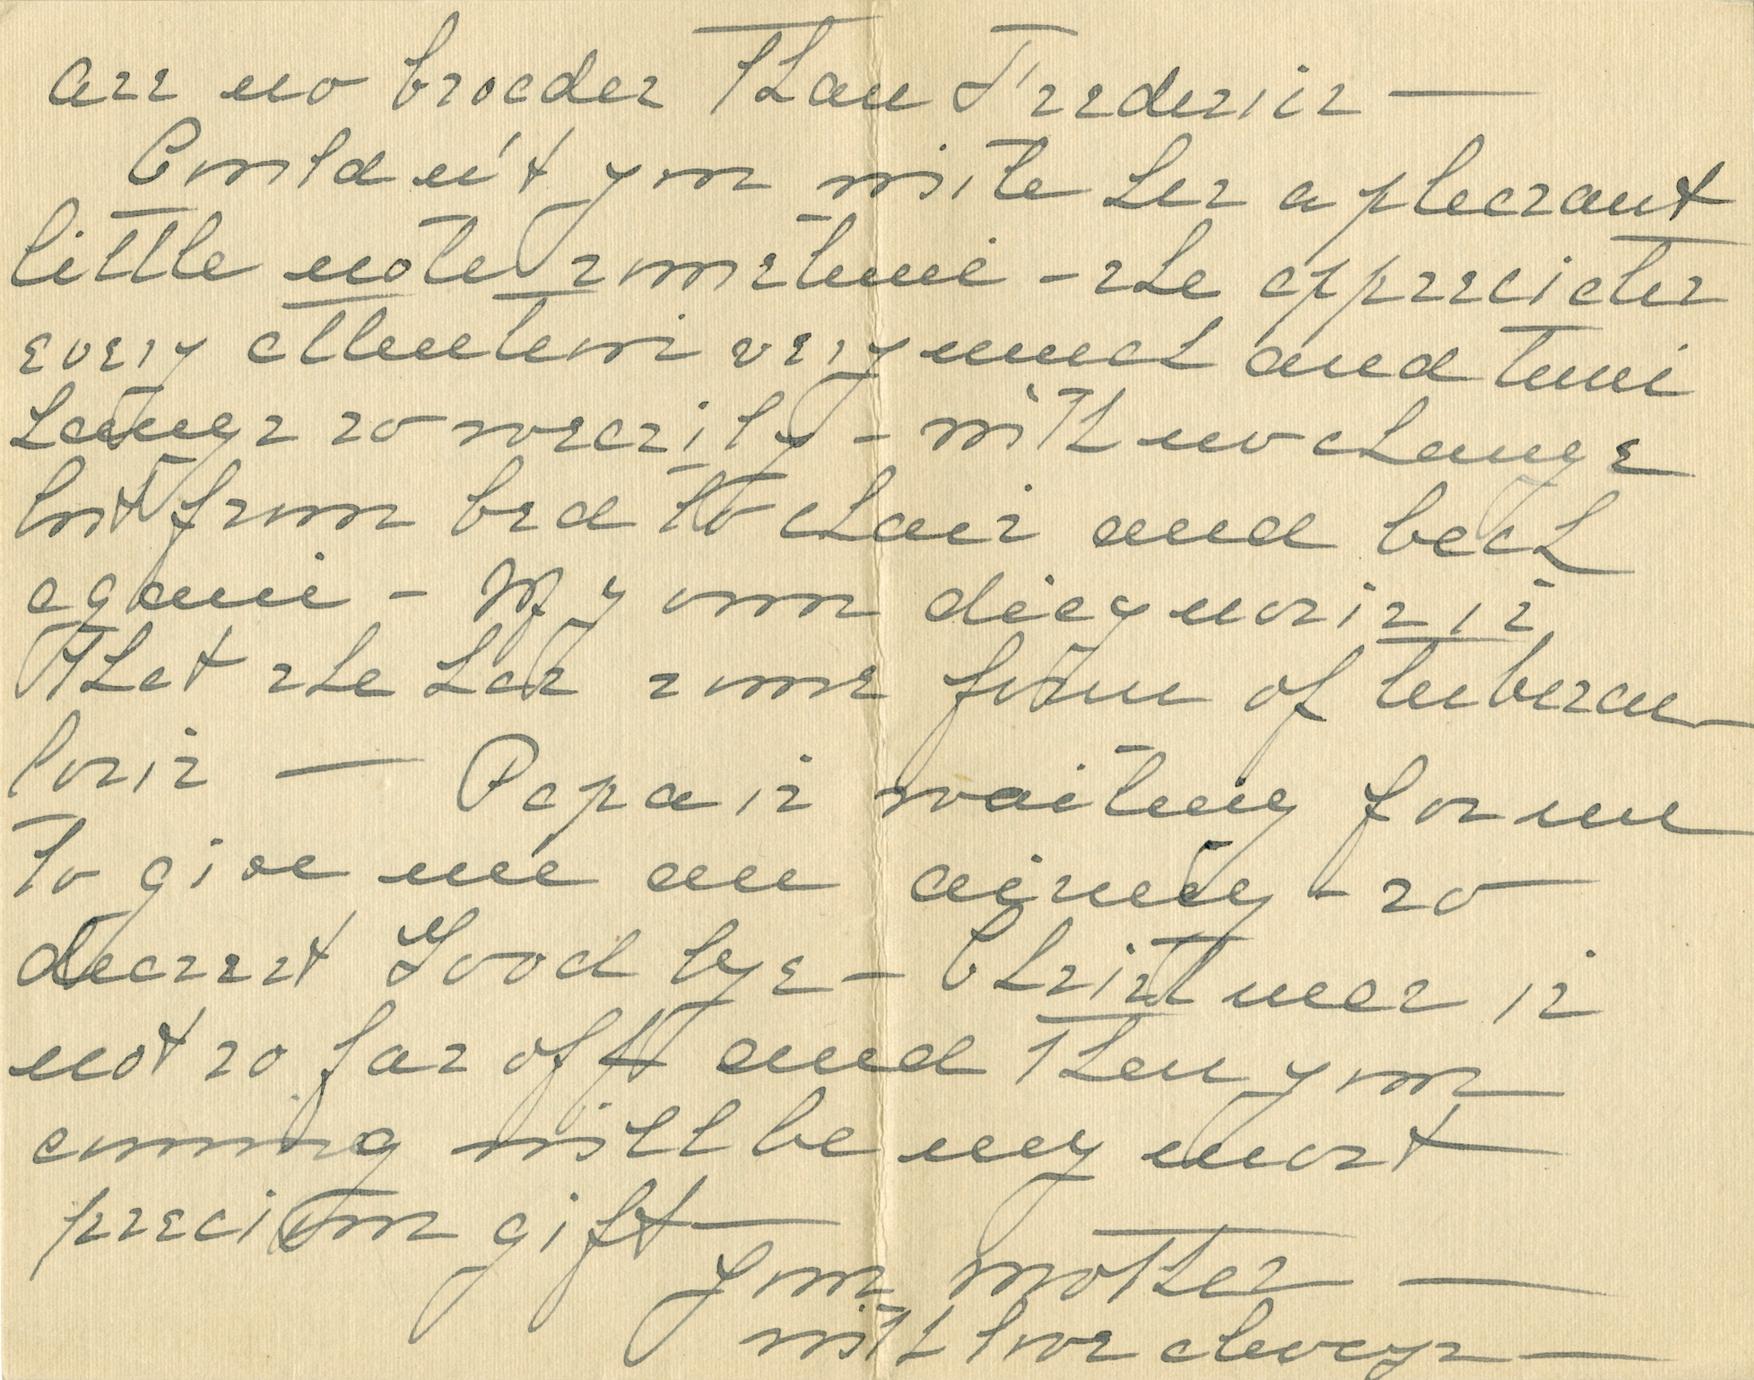 are no broader than Frederic —
Couldn't you write her a pleasant
little note sometime - she appreciates
every attention very much and time
hangs so wearily - with no change
but from bed to chair and back
again - My own diagnosis is
that she has some form of tubercu-
losis — Papa is waiting for me
to give me an airing - so
dearest Good bye - Christmas is
not so far off and then your
coming will be my most
precious gift —
Your mother —
with love always —